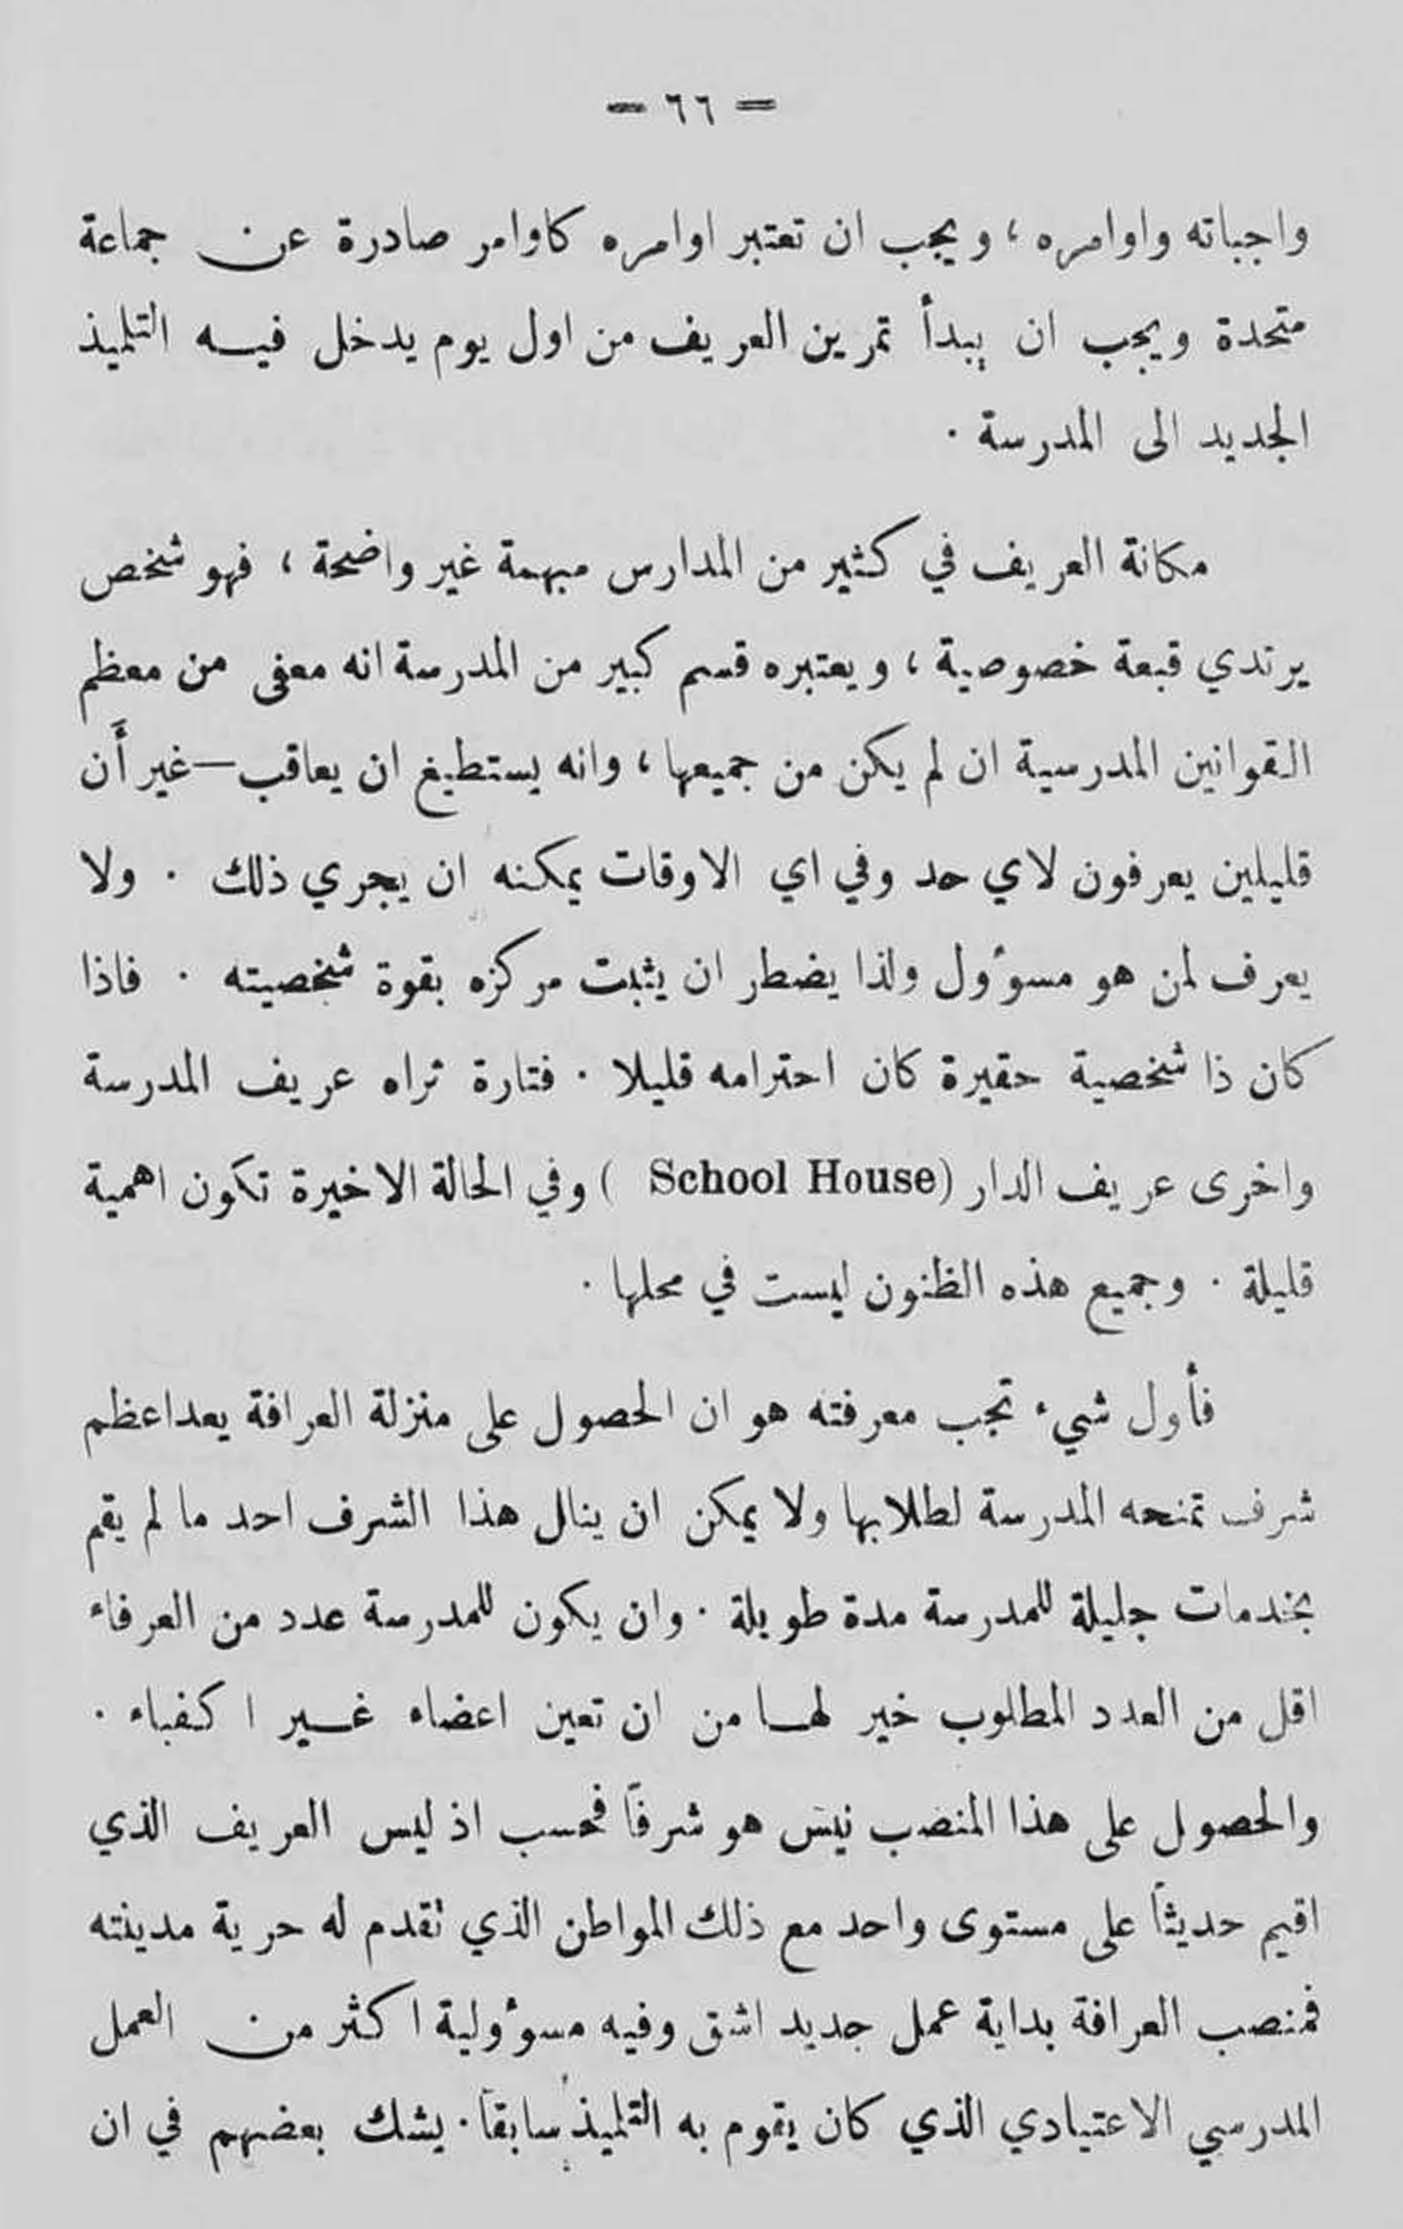 = ٦٦ =
واجباته واوامره ، ويجب ان تعتبر اوامره كاوامر صادرة عن جماعة
متحدة ويجب ان يبدأ تمرين العريف من اول يوم يدخل فيه التلميذ
الجديد الى المدرسة ·
مكانة العريف في كثير من المدارس مبهمة غير واضحة ، فهو شخص
يرتدي قبعة خصوصية ، ويعتبره قسم كبير من المدرسة انه معفى من معظم
القوانين المدرسية ان لم يكن من جميعها ، وانه يستطيغ ان يعاقب — غير أَن
قليلين يعرفون لاي حد وفي اي الاوقات يمكنه ان يجري ذلك · ولا
يعرف لمن هو مسوؤل ولذا يضطر ان يثبت مركزه بقوة شخصيته · فاذا
كان ذا شخصية حقيرة كان احترامه قليلا · فتارة تراه عريف المدرسة
واخرى عريف الدار (School House) وفي الحالة الاخيرة تكون اهمية
قليلة · وجميع هذه الظنون ليست في محلها ·
فأول شيء تجب معرفته هو ان الحصول على منزلة العرافة يعد اعظم
شرف تمنحه المدرسة لطلابها ولا يمكن ان ينال هذا الشرف احد ما لم يقم
بخدمات جليلة للمدرسة مدة طويلة · وان يكون للمدرسة عدد من العرفاء
اقل من العدد المطلوب خير لها من ان تعين اعضاء غير اكفباء ·
والحصول على هذا المنصب ليس هو شرفاً فحسب اذ ليس العريف الذي
اقيم حديثاً على مستوى واحد مع ذلك المواطن الذي تقدم له حرية مدينته
فمنصب العرافة بداية عمل جديد اشق وفيه مسوؤلية اكثر من العمل
المدرسي الاعتيادي الذي كان يقوم به التلميذ سابقاً · يشك بعضهم في ان